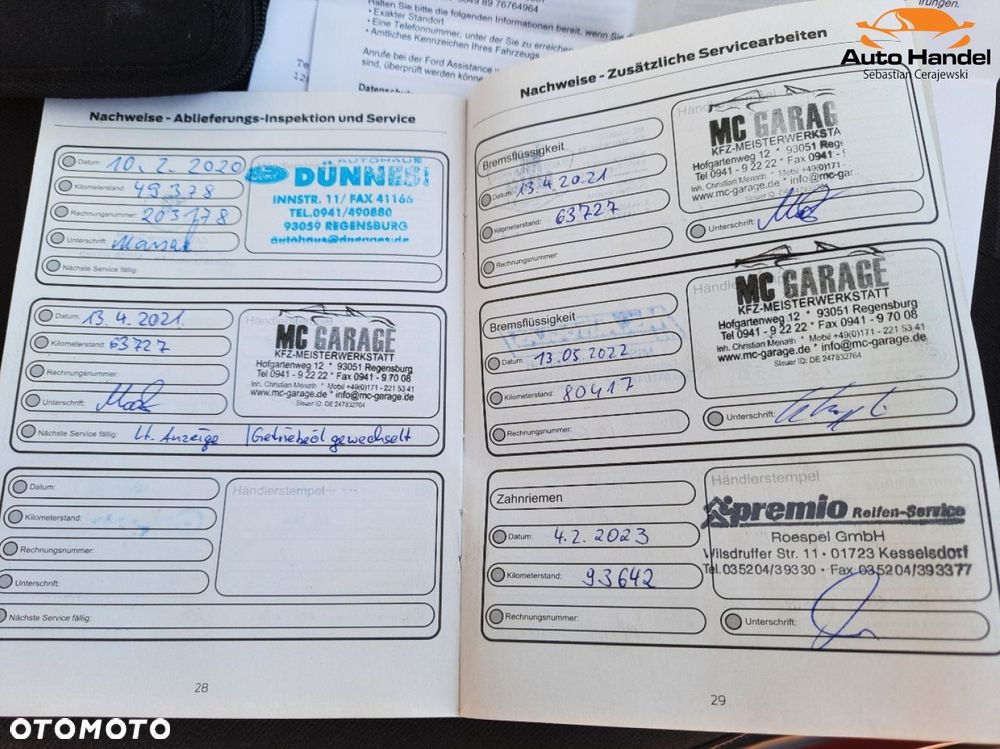 0049 89 76764964
Halten Sie bitte die folgenden Informationen bereit, wenn Sie
• Exakter Standort
• Eine Telefonnummer, unter der Sie zu erreichen
• Amtliches Kennzeichen Ihres Fahrzeugs
Anrufe bei der Ford Assistance
sind, überprüft werden könne
Auto Handel
Sebastian Cerajewski
Nachweise - Ablieferungs-Inspektion und Service
Datum: 10.2.2020
Kilometerstand: 49378
Rechnungsnummer: 203178
Unterschrift:
Nächste Service fällig:
AUTOHAUS
Ford DÜNNES
INNSTR. 11/ FAX 41166
TEL.0941/490880
93059 REGENSBURG
autohaus@duennes.de
Datum: 13.4.2021
Kilometerstand: 63727
Rechnungsnummer:
Unterschrift:
Nächste Service fällig: Lt. Anzeige | Getriebeöl gewechselt
MC GARAGE
KFZ-MEISTERWERKSTATT
Hofgartenweg 12 * 93051 Regensburg
Tel 0941 - 9 22 22 * Fax 0941 - 9 70 08
Inh. Christian Menath * Mobil +49(0)171 - 221 53 41
www.mc-garage.de * info@mc-garage.de
Steuer ID: DE 247832764
Datum:
Kilometerstand:
Rechnungsnummer:
Unterschrift:
Nächste Service fällig:
Händlerstempel
28
Nachweise - Zusätzliche Servicearbeiten
Bremsflüssigkeit
Datum: 13.4.2021
Kilometerstand: 63727
Rechnungsnummer:
MC GARAG
KFZ-MEISTERWERKSTA
Hofgartenweg 12 * 93051 Rege
Tel 0941 - 9 22 22 * Fax 0941 - 9
Inh. Christian Menath * Mobil +49(0)171
www.mc-garage.de * info@mc-gar
Unterschrift:
Bremsflüssigkeit
Datum: 13.05.2022
Kilometerstand: 80417
Rechnungsnummer:
MC GARAGE
KFZ-MEISTERWERKSTATT
Hofgartenweg 12 * 93051 Regensburg
Tel 0941 - 9 22 22 * Fax 0941 - 9 70 08
Inh. Christian Menath * Mobil +49(0)171 - 221 53 41
www.mc-garage.de * info@mc-garage.de
Steuer ID: DE 247832764
Unterschrift:
Zahnriemen
Datum: 4.2.2023
Kilometerstand: 93642
Rechnungsnummer:
Händlerstempel
premio Reifen-Service
Roespel GmbH
Wilsdruffer Str. 11 · 01723 Kesselsdorf
Tel. 035204/39330 · Fax 035204/393377
Unterschrift:
29
OTOMOTO